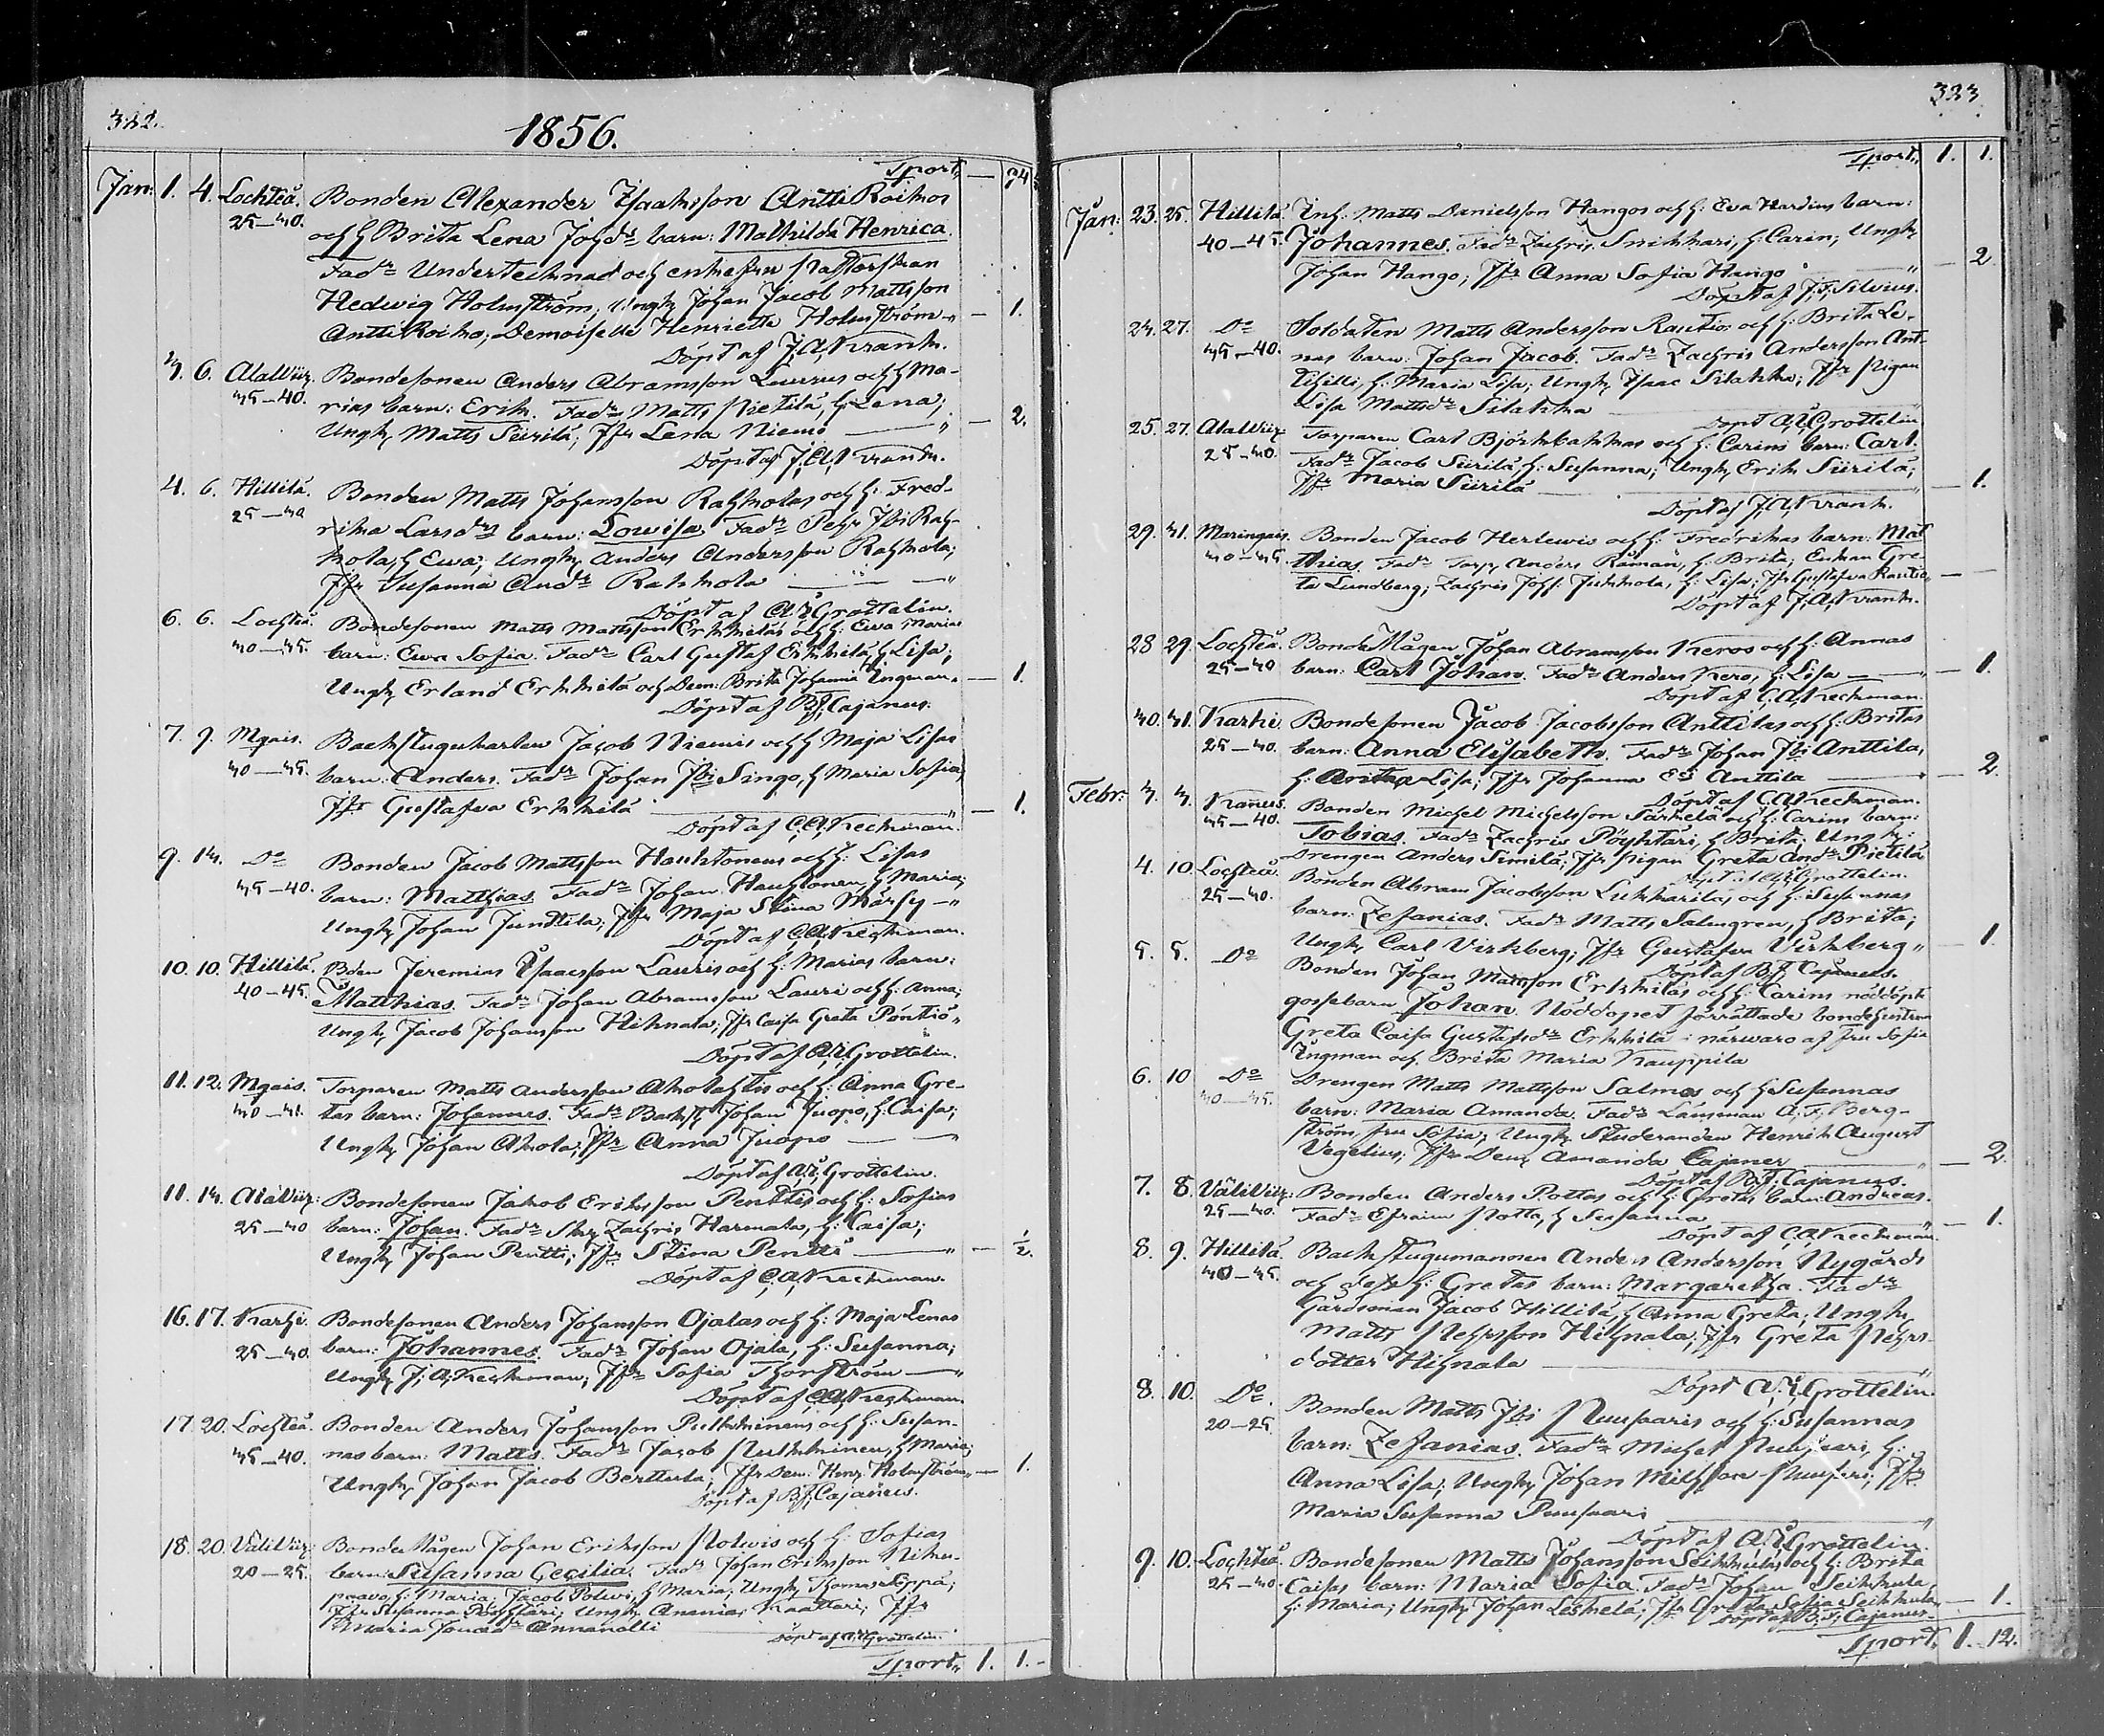 322.
1856.
Tport,, — 74
Jan: 1. 4. Lochteå. Bonden Alexander Isaaksson Antti Roikos
25—30. och h Brita Lena Johsdr barn: Mathilda Henrica.
Faddr Undertecknad och enkefru Pastorskan
Hedwig Holmström; Ungk. Johan Jacob Mattsson
Antti Roiko; Demoiselle Henrietta Holmström „ — 1.
Döpt af J. A. Krank.
3. 6. AlaWiir. Bondesonen Anders Abramsson Laurus och h Ma-
35—40. rias barn: Erik. Faddr Matts Pietilä, h: Lena;
Ungk. Matts Siirilä; Pfr Lena Niemo — „ — 2.
Döpt af J. A. Krank.
4. 6. Hillilä. Bonden Matts Johansson Rahkolas och h: Fred-
25—30 rika Larsdrs barn: Lowisa. Faddr Pehr Jbi Rah-
kola, h Ewa; Ungk. Anders Andersson Rahkola;
Pfr Susanna Andr Rahkola — „
Döpt af A. R. Grottelin.
6. 6. Lochteå. Bondesonen Matts Mattsson Erkkiläs och h: Ewa Marias
30—35. barn: Ewa Sofia. Faddr Carl Gustaf Erkkilä, h Lisa;
Ungk. Erland Erkkilä och Dem: Brita Johanna Ingman „ — 1.
Döpt af B. F. Cajanus.
7. 9. Mgais. Backstugukarlen Jacob Niemis och h Maja Lisas
30—35. barn: Anders. Faddr Johan Jbi Singo, h Maria Sofia;
Pfr Gustafwa Erkkilä — „ — 1.
Döpt af C. A. Keckman.
9. 13. Do Bonden Jacob Mattsson Hauktonens och h: Lisas
35—40. barn: Matthias. Faddr Johan Hauktonen, h Maria;
Ungk. Johan Junttila; Pfr Maja Stina Märsy — „
Döpt af C. A. Keckman.
10. 10. Hillilä. Bden Jeremias Isaacsson Lauris och h: Marias barn:
40—45. Matthias. Faddr Johan Abramsson Lauri och h: Anna;
Ungk. Jacob Johansson Hihnala; Pfr Caisa Greta Pöntiö „
Döpt af A. R. Grottelin.
11. 12. Mgais. Torparen Matts Andersson Aholahtis och h: Anna Gre-
30—31. tas barn: Johannes. Faddr Backst. Johan Juopo, h: Caisa;
Ungk. Johan Ahola; Pfr Anna Juopo — „
Döpt af A. R. Grottelin.
11. 13. AlaWiir: Bondesonen Jakob Eriksson Penttis och h: Sofias
25—30 barn: Johan. Faddr Skr. Zachris Harmala, h: Caisa;
Ungk. Johan Pentti; Pfr Stina Pentti — „ — 1/2.
Döpt af C. A. Keckman.
16. 17. Karhi. Bondesonen Anders Johansson Ojalas och h: Maja Lenas
25—30. barn: Johannes. Faddr Johan Ojala, h: Susanna;
Ungk. J. A. Keckman; Pfr Sofia Thorström — „
Döpt af C. A. Keckman.
17. 20. Lochteå. Bonden Anders Johansson Pulkkinens och h: Susan-
35—40. nas barn: Matts. Faddr Jacob Pulkkinen, h Maria;
Ungk. Johan Jacob Berttula; Pfr Dem. Henr. Holmström „ — 1.
Döpt af B. F. Cajanus.
18. 20. WäliWiir. Bondemågen Johan Eriksson Polwis och h: Sofias
20—25. barn: Susanna Cecilia. Faddr Johan Eriksson Niku-
paavo, h: Maria; Jacob Polwi, h Maria; Ungk. Thomas Seppä;
Pfr Susanna Pöyhtäri; Ungk. Ananias Kaattari; Pfr
Maria Annanolli
Döpt af A. R. Grottelin.
Tport,, 1. 1.-
323
Tport,, 1. 1.
Jan: 23. 25. Hillilä Inh. Matts Danielsson Hangos och h: Eva Hardins barn:
40—45. Johannes. Faddr Zachris Snikkari, h: Carin; Ungk.
Johan Hango; Pfr Anna Sofia Hango — „ — 2
Döpt af J. F. Silvius.
24. 27. Do Soldaten Matts Andersson Rautios och h: Brita Le-
35—40. nas barn: Johan Jacob. Faddr Zachris Andersson Ant-
tihilli, h: Maria Lisa; Ungk. Isaac Silakka; Pfr Pigan
Lisa Mattsdr Silakka
Döpt A. R. Grottelin
25. 27. AlaWiir. Torparen Carl Björkbackas och h: Carins barn: Carl.
25—30. Faddr Jacob Siirilä, h: Susanna; Ungk. Erik Siirilä;
Pfr Maria Siirilä — 1.
Döpt af J. A. Krank.
29. 31. Maringais. Bonden Jacob Herlewis och h: Fredrikas barn: Mat
30—35 thias. Faddr Torp. Anders Råman, h: Brita; Enkan Gre-
ta Lundberg; Zachris Johss. Jukkola, h: Lisa; Pfr Gustafva Rautio „ — —
Döpt af J. A. Krank.
28 29. Lochteå. Bondemågen Johan Abramsson Keros och h: Annas
25—30 barn: Carl Johan. Faddr Anders Kero, h: Lisa — „ — 1.
Döpt af C. A. Keckman.
30. 31. Karhi. Bondesonen Jacob Jacobsson Anttilas och h: Britas
25—30. barn: Anna Elisabeth. Faddr Johan Jbi Anttila,
h: Brita Lisa; Pfr Johanna Anttila — 2.
Döpt af C. A. Keckman.
Febr: 3. 3. Kanus. Bonden Michel Michelsson Särkelä och h: Carins barn:
35—40. Tobias. Faddr Zachris Pöyhtäri, h Brita; Ungk:
Drengen Anders Similä; Pfr Pigan Greta Andr Pietilä
Döpt af A. R. Grottelin.
4. 10. Lochteå. Bonden Abram Jacobsson Lukkarilas och h: Susannas
25—30. barn: Zefanias. Faddr Matts Salmgren, h Brita;
Ungk. Carl Virkberg; Pfr Gustafva Virkberg „ — 1.
Döpt af B. F. Cajanus.
5. 5. Do Bonden Johan Mattsson Erkkiläs och h: Carins nöddöpte
gossebarn Johan. Nöddopet förrättade bondehustrun
Greta Caisa Gustafsdr Erkkilä i närwaro af Fru Sofia
Ingman och Brita Maria Kauppila
6. 10 Do Drengen Matts Mattsson Salmos och h Susannas
30—35. barn: Maria Amanda. Faddr Länsman A. F. Berg-
ström, fru Sofia; Ungk. Studeranden Henrik August
Vegelius; Pfr Dem. Amanda Cajaner — „ — 2.
Döpt af B. F. Cajanus.
7. 8. WäliWiir. Bonden Anders Pottas och h: Gretas barn: Andreas.
25—30. Faddr Efraim Potta, h Susanna — „ — 1.
Döpt af C. A. Keckman.
8. 9. Hillilä Backstugumannen Anders Andersson Nygårds
30—35. och dess h: Gretas barn: Margaretha. Faddr
Gårdsman Jacob Hillilä, h Anna Greta; Ungk.
Matts Pehrsson Hihnala; Pfr Greta Pehrs-
dotter Hihnala
Döpt A. R. Grottelin.
8. 10. Do. Bonden Matts Jbi Puusaaris och h: Susannas
20—25 barn: Zefanias. Faddr Michel Puusaari, h:
Anna Lisa; Ungk. Johan Michsson Puusaari; Pfr
Maria Susanna Puusaari „
Döpt af A. R. Grottelin.
9. 10. Lochteå Bondesonen Matts Johansson Seikkulas och h: Brita
25—30. Caisas barn: Maria Sofia. Faddr Johan Seikkula,
h: Maria; Ungk. Johan Leskelä; Pfr Greta Sofia Seikkula „ — 1.
Döpt af B. F. Cajanus.
Tport,, 1. 12.